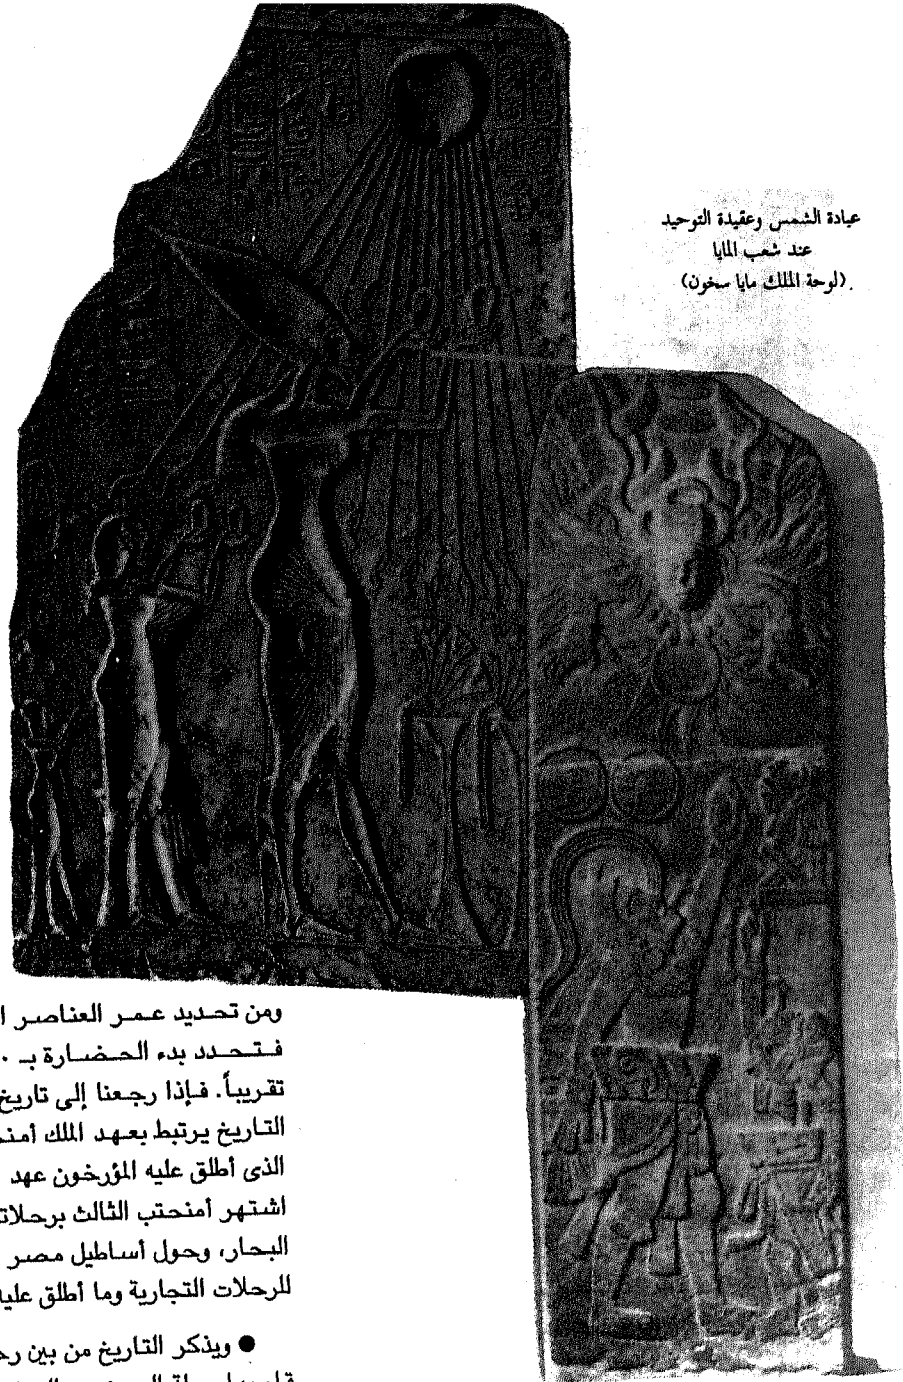 عبادة الشمس وعقيدة التوحيد
عند شعب المايا
(لوحة الملك مايا سخون).
ومن تحديد عمر العناصر ا
فتتحدد بدء الحضارة بـ ٠
تقريباً. فإذا رجعنا إلى تاريخ
التاريخ يرتبط بعهد الملك أمنـ
الذى أطلق عليه المؤرخون عهد
اشتهر أمنحتب الثالث برحلاتـ
البحار، وحول أساطيل مصر
للرحلات التجارية وما أطلق عليـ
● ويذكر التاريخ من بين رحـ